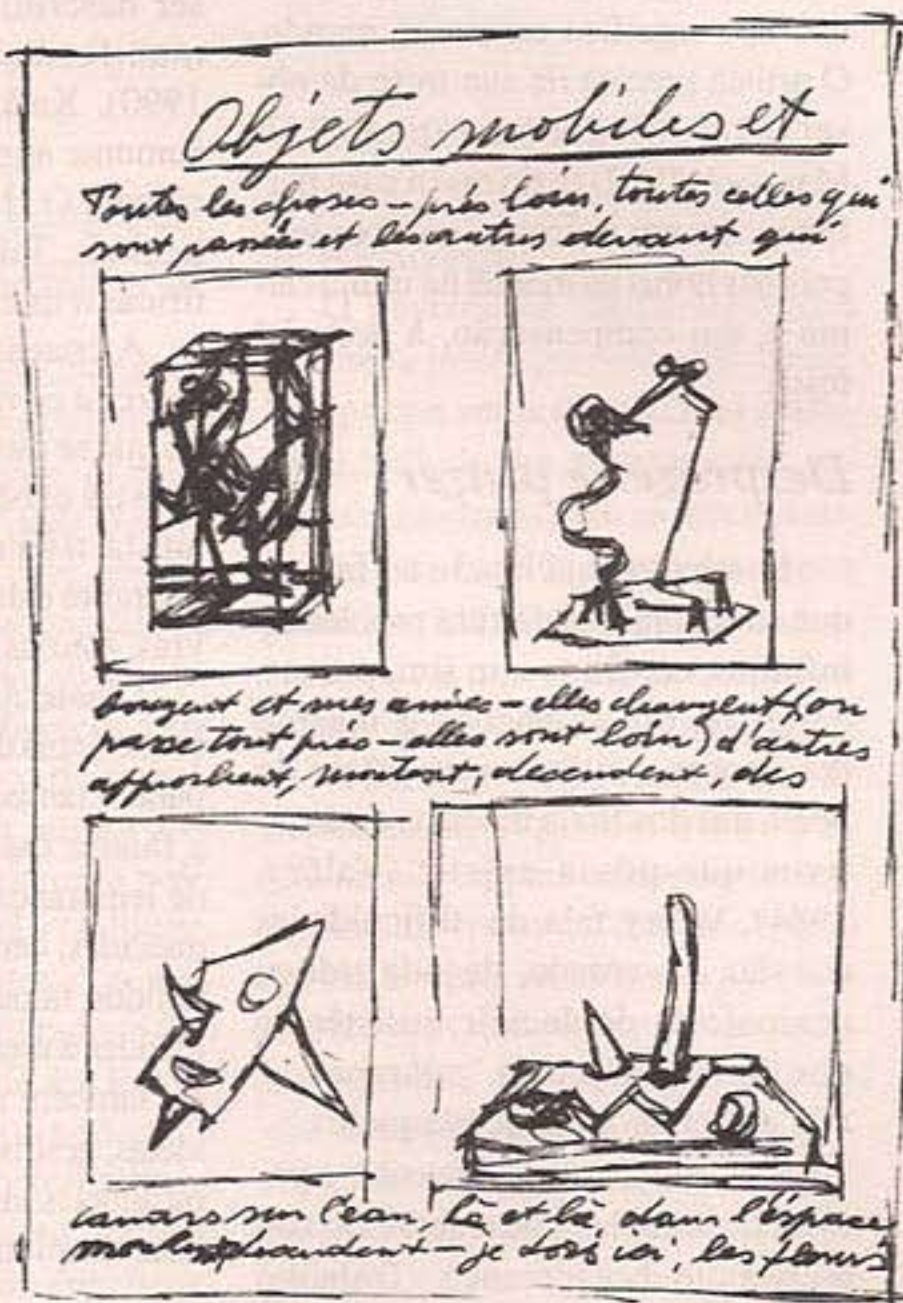 Objets mobiles et
Toutes les choses – près loin, toutes celles qui
sont passées et les autres devant qui
bougent et mes amies – elles changent (on
passe tout près – elles sont loin) d'autres
approchent, montent, descendent, des
canars sur l'eau, là et là, dans l'éspace
descendent – je dors ici, les fleurs